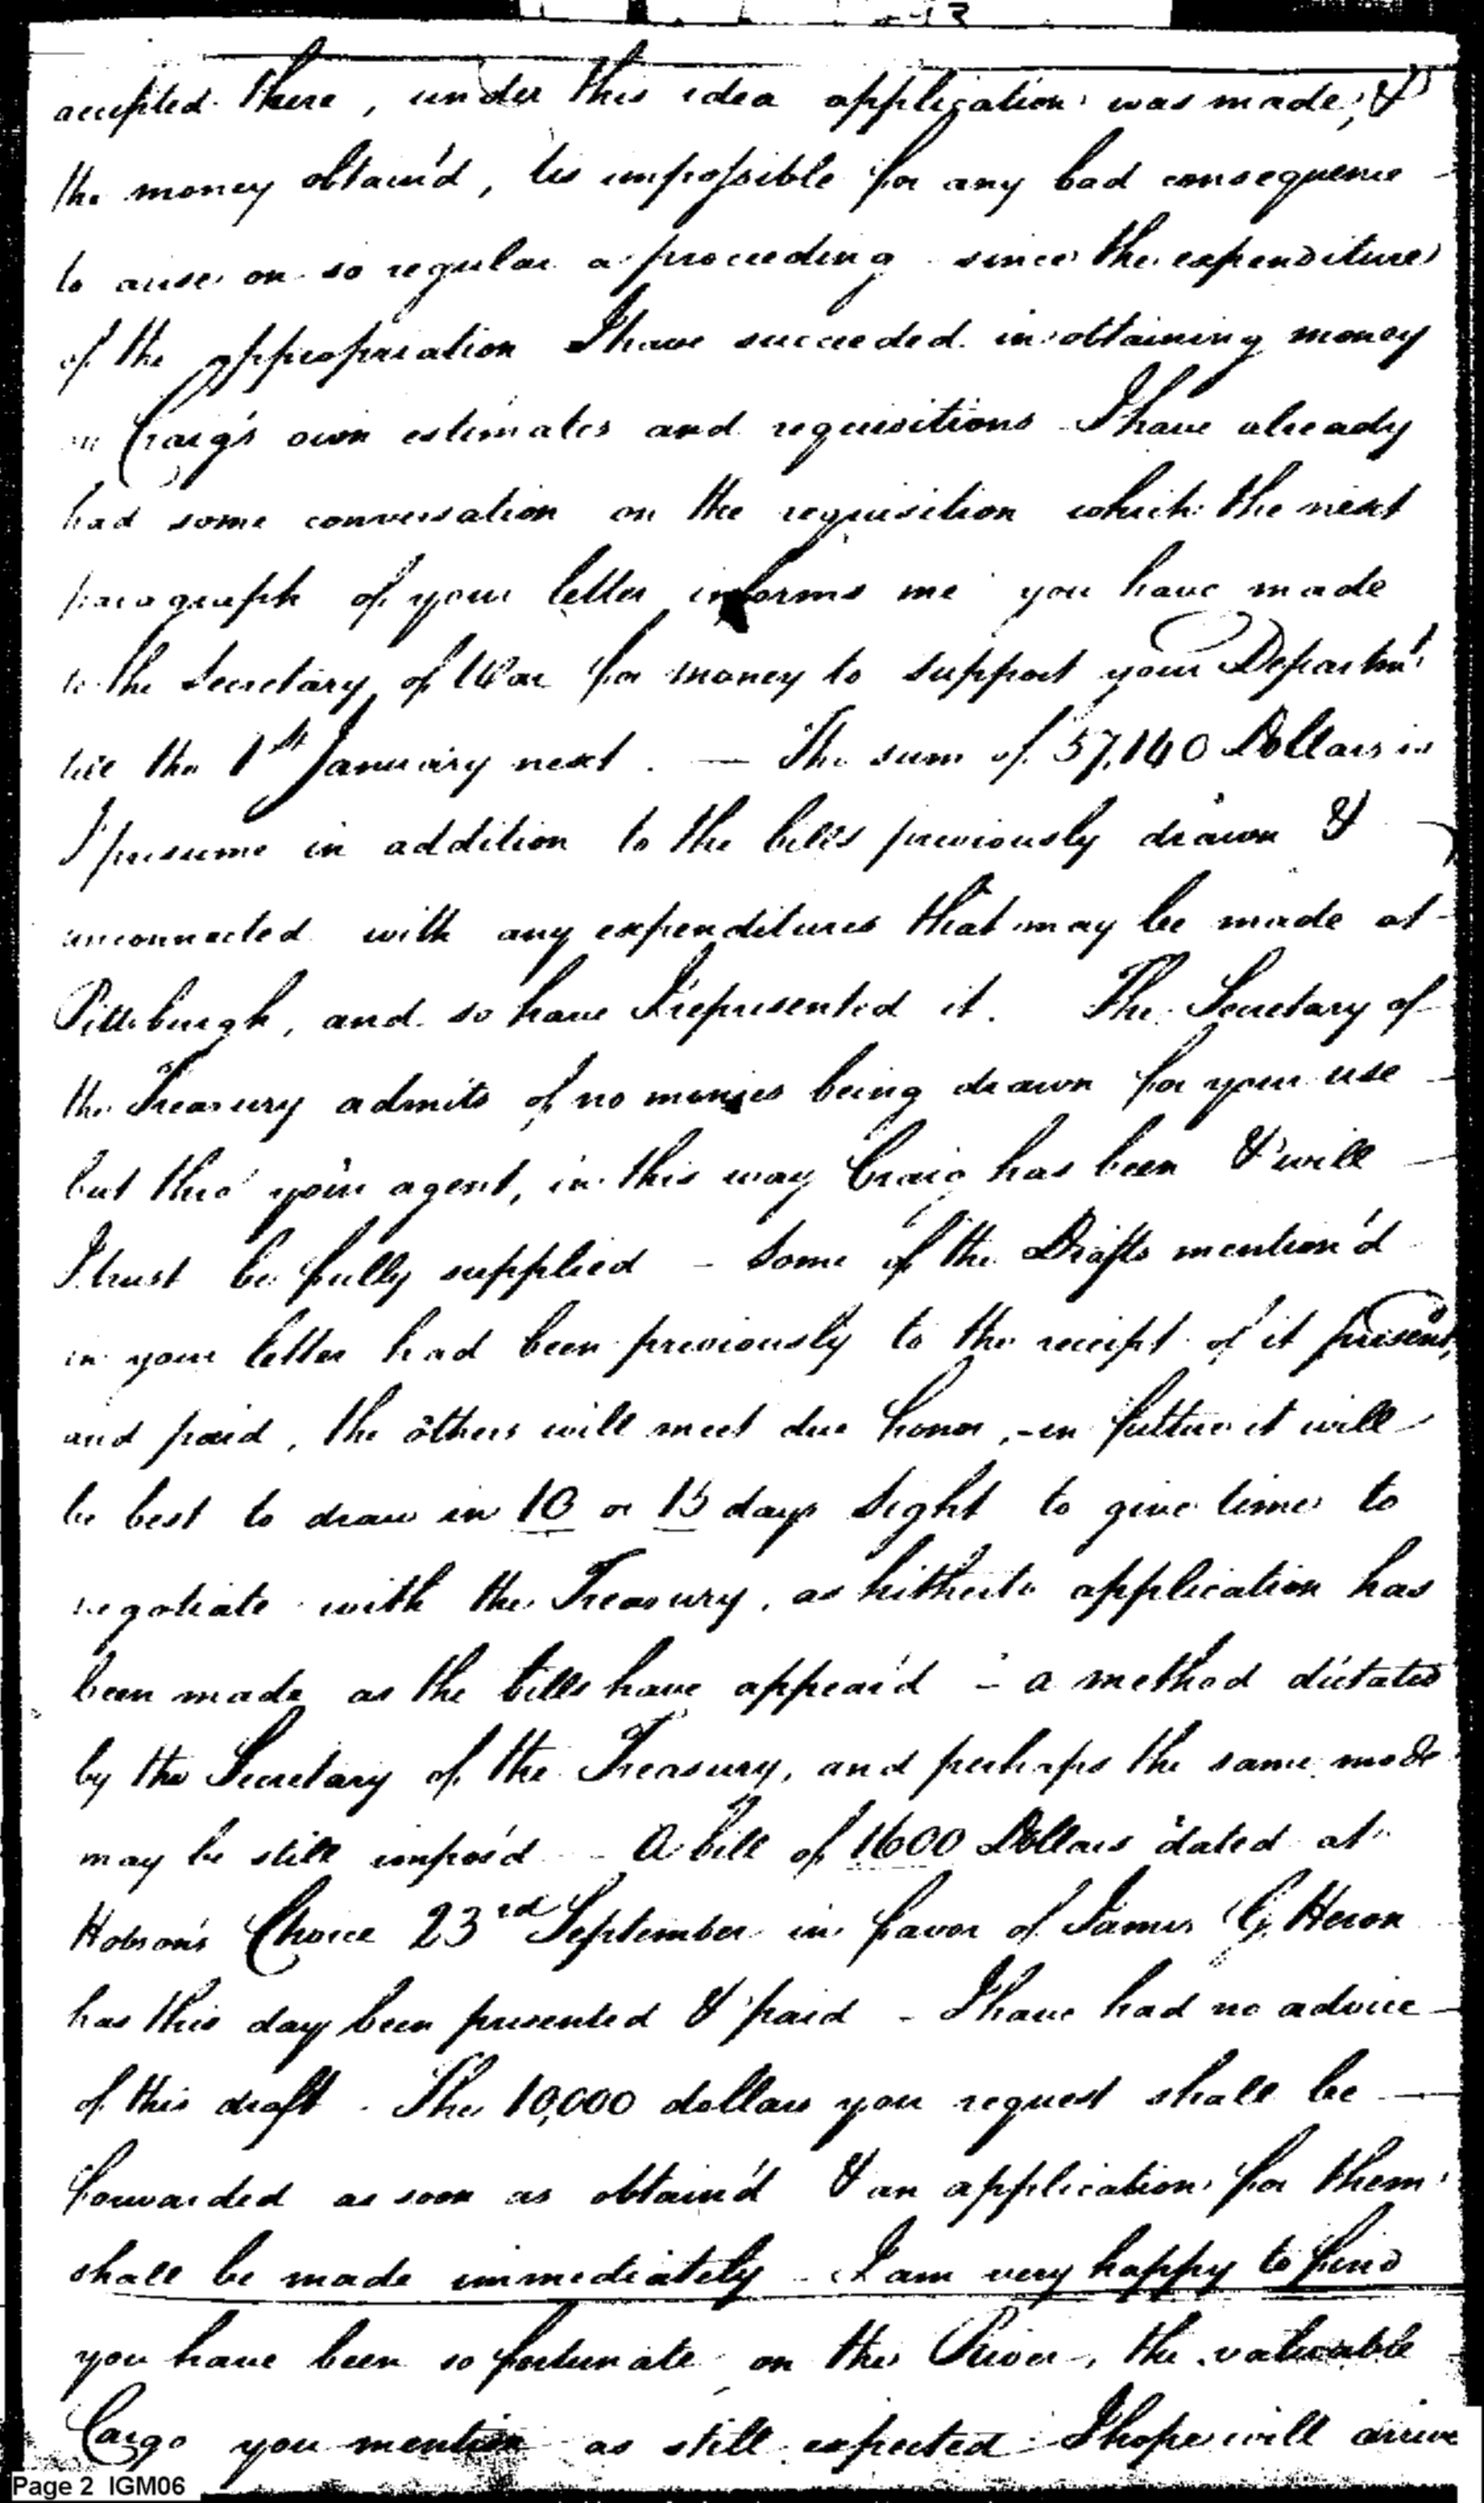 accepted there, under this idea application was made, &
the money obtain'd, tis impossible for any bad consequence
to arise on so regular a proceeding since the expenditure
of the appropriation I have succeeded in obtaining money
on Craig's own estimates and requisitions I have already
had some conversation on the requisition which the next
paragraph of your letter informs me you have made
to the Secretary of War for money to support your Departmt
till the 1st January next. — The sum of 57,140 Dollars is
I presume in addition to the bills previously drawn &
unconnected with any expenditures that may be made at
Pittsburgh, and so have I represented it. The Secretary of
the Treasury admits of no monies being drawn for your use
but thro' your agent, in this way Craig has been & will
I trust be fully supplied – Some of the Drafts mention'd
in your letter had been previously to the receipt of it present,d
and paid, the others will meet due honor, – in future it will
be best to draw in 10 or 15 days Sight to give time to
negotiate with the Treasury, as hitherto application has
been made as the bills have appear'd – a method dictated
by the Secretary of the Treasury, and perhaps the same mode
may be still impos'd – A bill of 1600 Dollars dated at
Hobson's Choice 23rd September in favor of James G, Heron
has this day been presented & paid – I have had no advice
of this draft. The 10,000 dollars you request shall be
forwarded as soon as obtain'd & an application for them
shall be made immediately – I am very happy to find
you have been so fortunate on the River, the valuable
Cargo you mention as still expected I hope will arrive
Page 2 IGM06